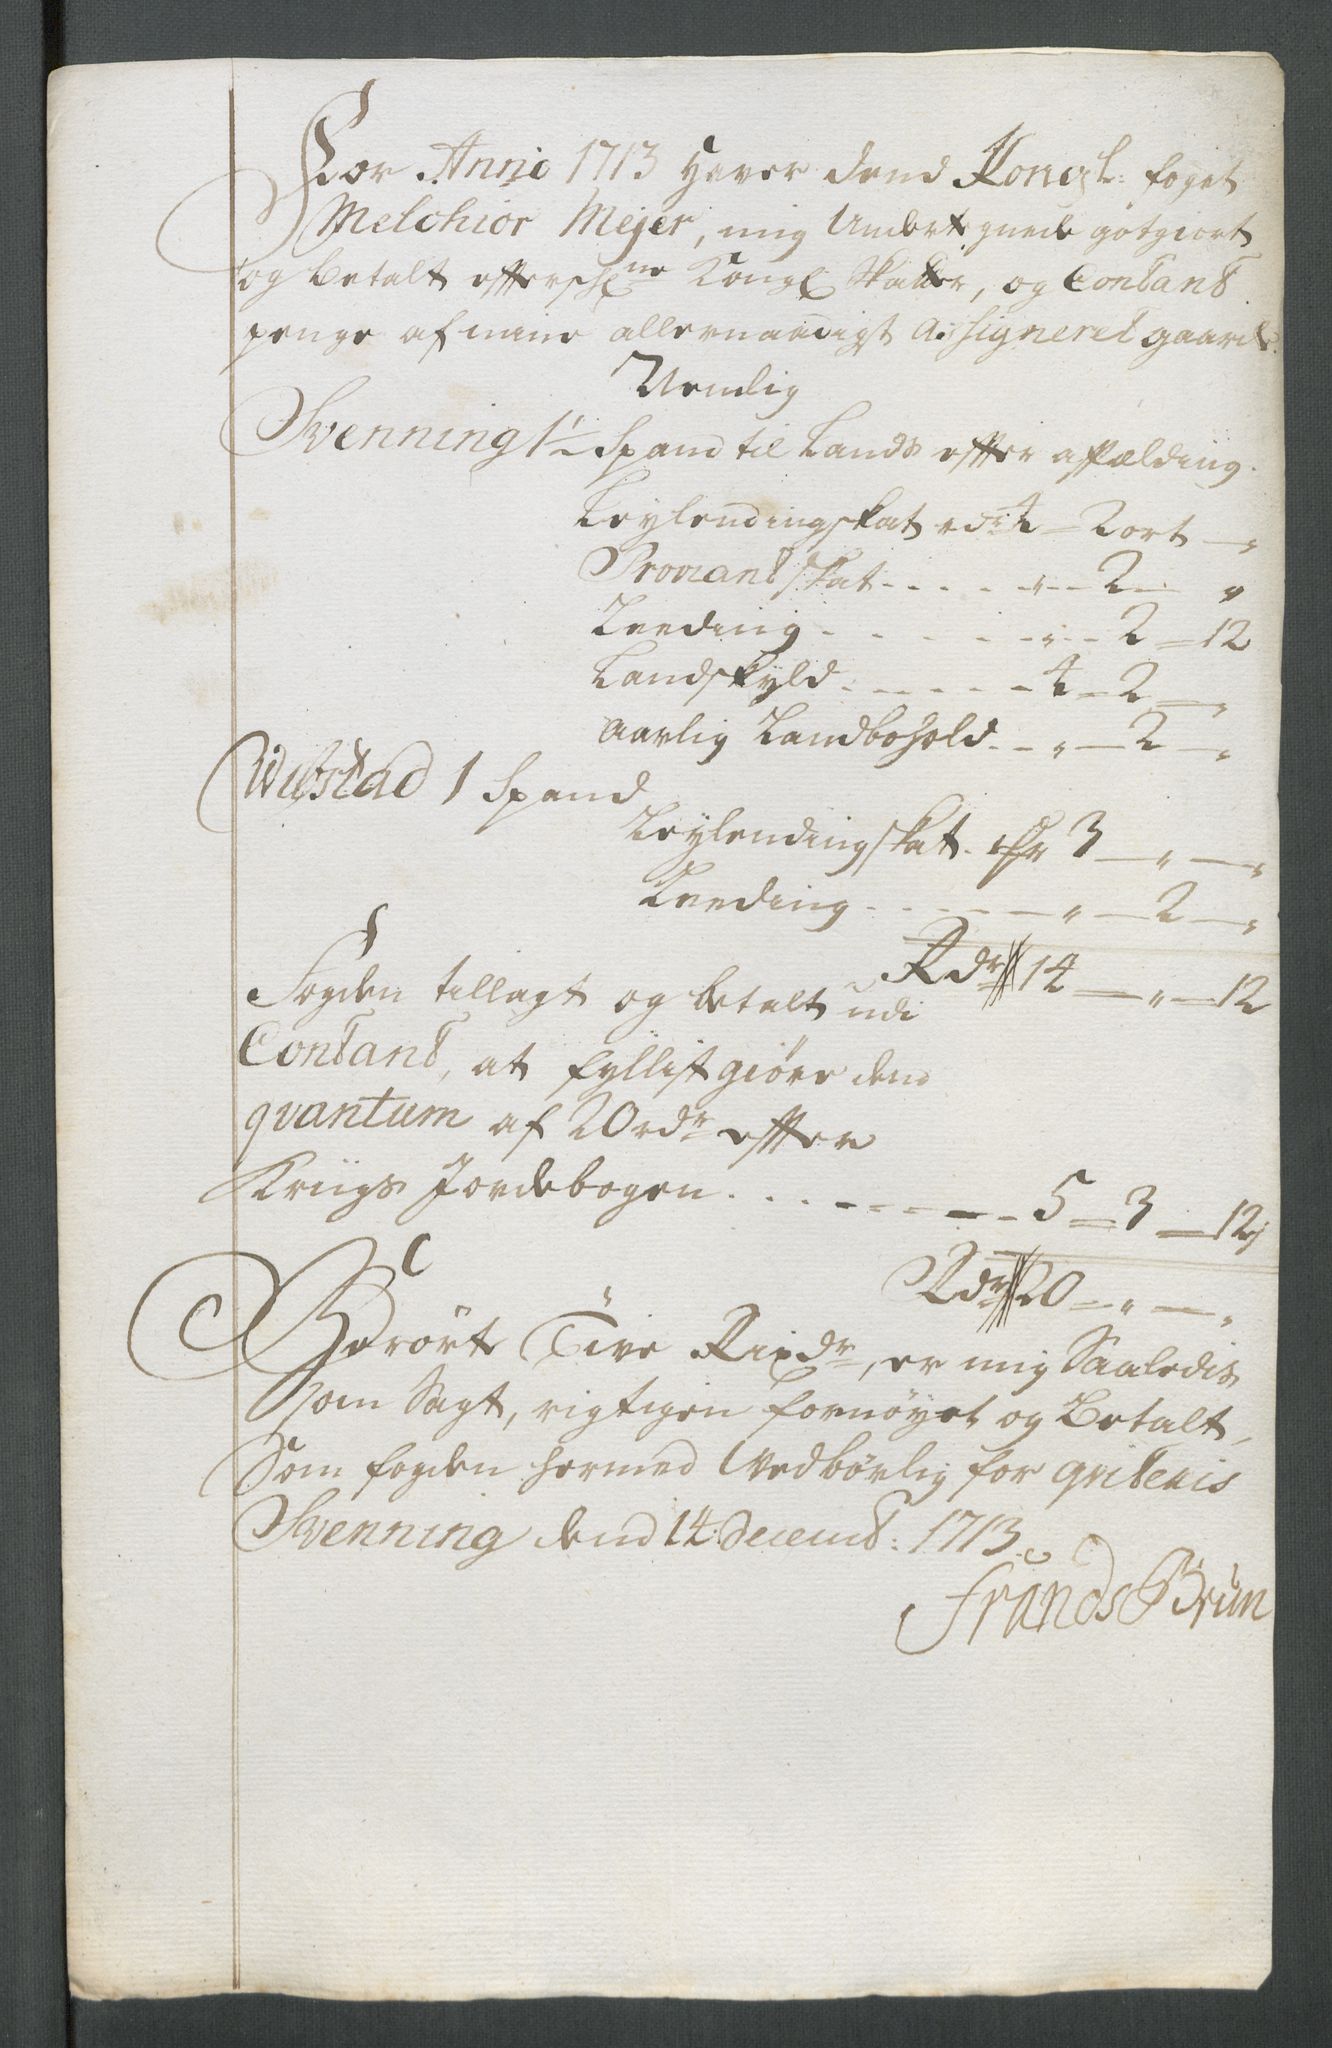 For Anno 1713 Haver dend Kongl: foget
Melchior Mejer, mig Undertegnede gotgiort
og betalt effterschne Kongl Skatter, og Contant
penge af mine allernaadigst assigneret gaarde.
Nemlig
Svenning 1½ Spand til Lands effter affælding.
Leylendingskat rdr 4 = 2 ort — „
Proviantskat . . . . . „ — 2 — „
Leeding . . . . . „ — 2 = 12
Landskyld . . . . . 4 = 2 — „
aarlig Landbohold . . „ — 2 — „
Wibstad 1 Spand
Leylendingskat. rdr 3 — „ — „
Leeding . . . . — „ — 2 — „
Rdr 14 — „ — 12
Fogden tillagt og betalt udi
Contant, at fyllist giøre dend
qvantum af 20 rdr effter
Kriigs Jordebogen . . . . . . . 5 = 3 — 12,
Rdr 20 = „ — „
Berørt Tive Rixdr, er mig Saaledis
som Sagt, rigtigen fornøyet og Betalt,
Som fogden hermed Vedbørlig for qviteris
Svenning dend 14 Decemb: 1713.
Frands Brun